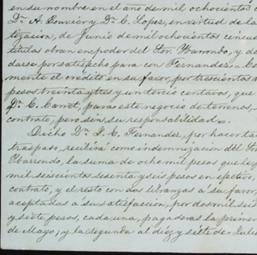 en su nombre en el año de mil ochocientos
D. A. y D. C. Lopez, en virtud de la
de Junio de mil ochocientos cincu
titulos obran en poder del Sor. Yturrondo, y de
darse por satisfecho para con Fernandez o Co
mente el crédito en su favor, por trescientos
pesos treinta y tres y un tercio centavos, que
D. C. Canet, para este negocio de terrenos,
contrato, pero sin su responsabilidad.
Dicho Dn. J. C. Fernandez, por hacer tal
traspaso, recibirá como indemnizacion del Sor
Yturrondo, la suma de ocho mil pesos que le
mil seiscientos sesenta y seis pesos en efectivo,
contrato, y el resto con dos libranzas á su favor,
aceptadas á su satisfaccion, por dos mil seis
y siete pesos, cada una, pagaderas la primera
de Mayo, y la segunda al diez y siete de Julio